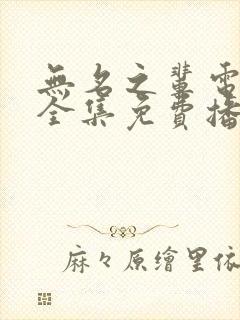 無名之輩電
全集免費播
麻々原繪里依